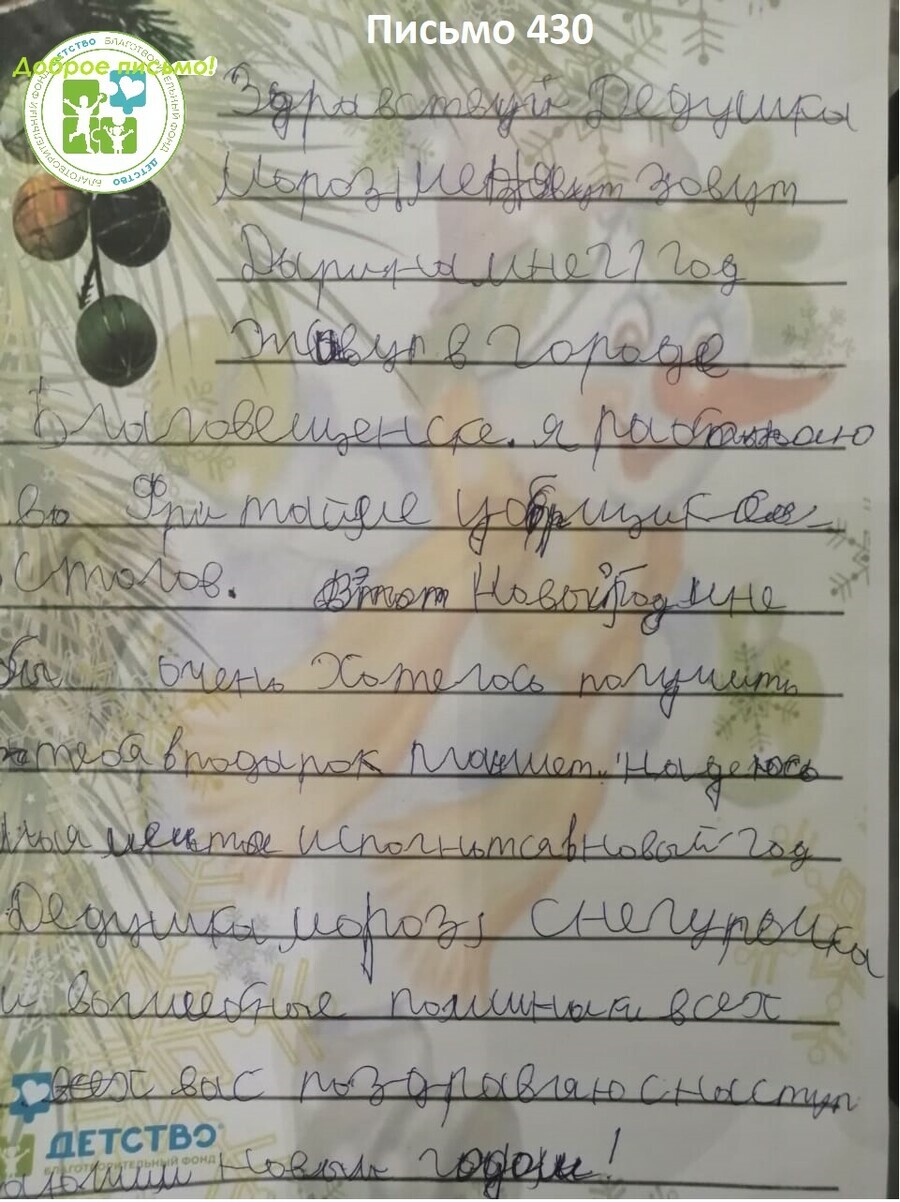 Письмо 430
Доброе письмо!
БЛАГОТВОРИТЕЛЬНЫЙ ФОНД ДЕТСТВО БЛАГОТВОРИТЕЛЬНЫЙ ФОНД ДЕТСТВО
Здравствуй Дедушка
Мороз, меня зовут
Дарина мне 21 год
Живут в городе
Благовещенске. я работаю
во Фритайме уборщиком
столов. в этот Новый Год мне
бы очень хотелось получить
от тебя в подарок планшет. Надеюсь
моя мечта исполнится в новый год
Дедушка мороз, Снегурочка
и волшебные помшныки всех
всех вас поздравляю с наступ
ДЕТСТВО
БЛАГОТВОРИТЕЛЬНЫЙ ФОНД
новым годом!